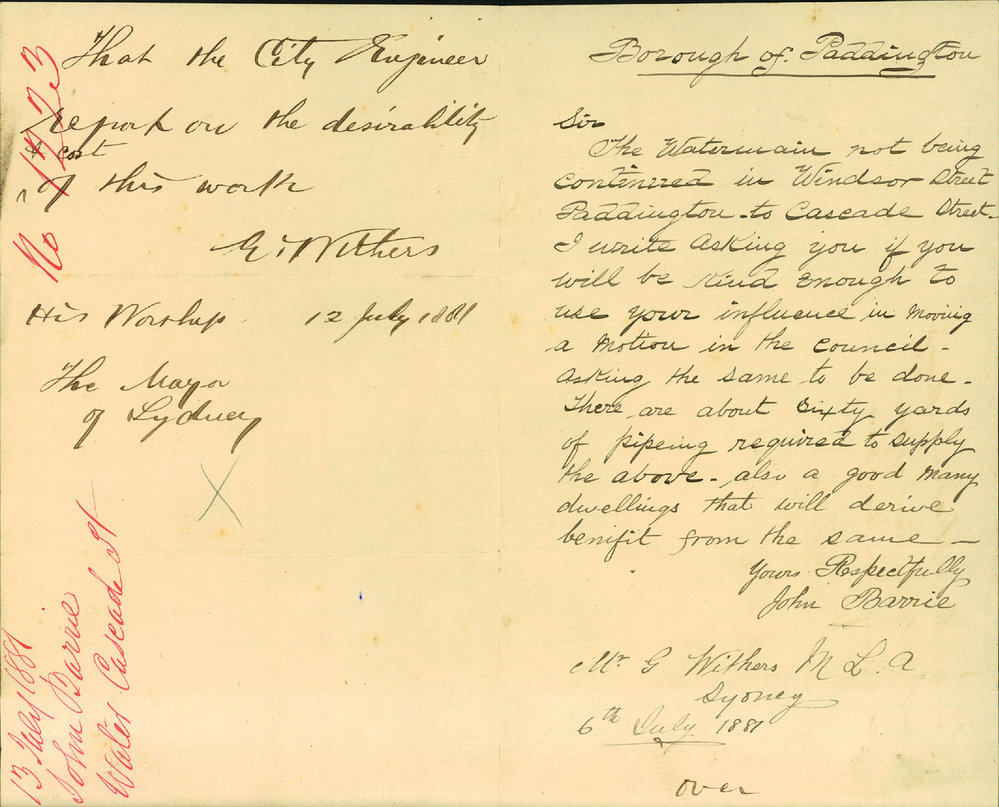 That the City Engineer
report on the desirability
& cost
^ of this work
G. Withers
His Worship 12 July 1881
The Mayor
of Sydney
No 1723
13 July 1881
John Barrie
Water Cascade St
Borough of Paddington
Sir
The Watermain not being
continued in Windsor Street
Paddington - to Cascade Street -
I write asking you if you
will be kind enough to
use your influence in moving
a motion in the council -
asking the same to be done -
There are about sixty yards
of pipeing required to supply
the above - also a good many
dwellings that will derive
benifit from the same -
Yours Respectfully
John Barrie
Mr G Withers M L. A
Sydney
6th July 1881
over